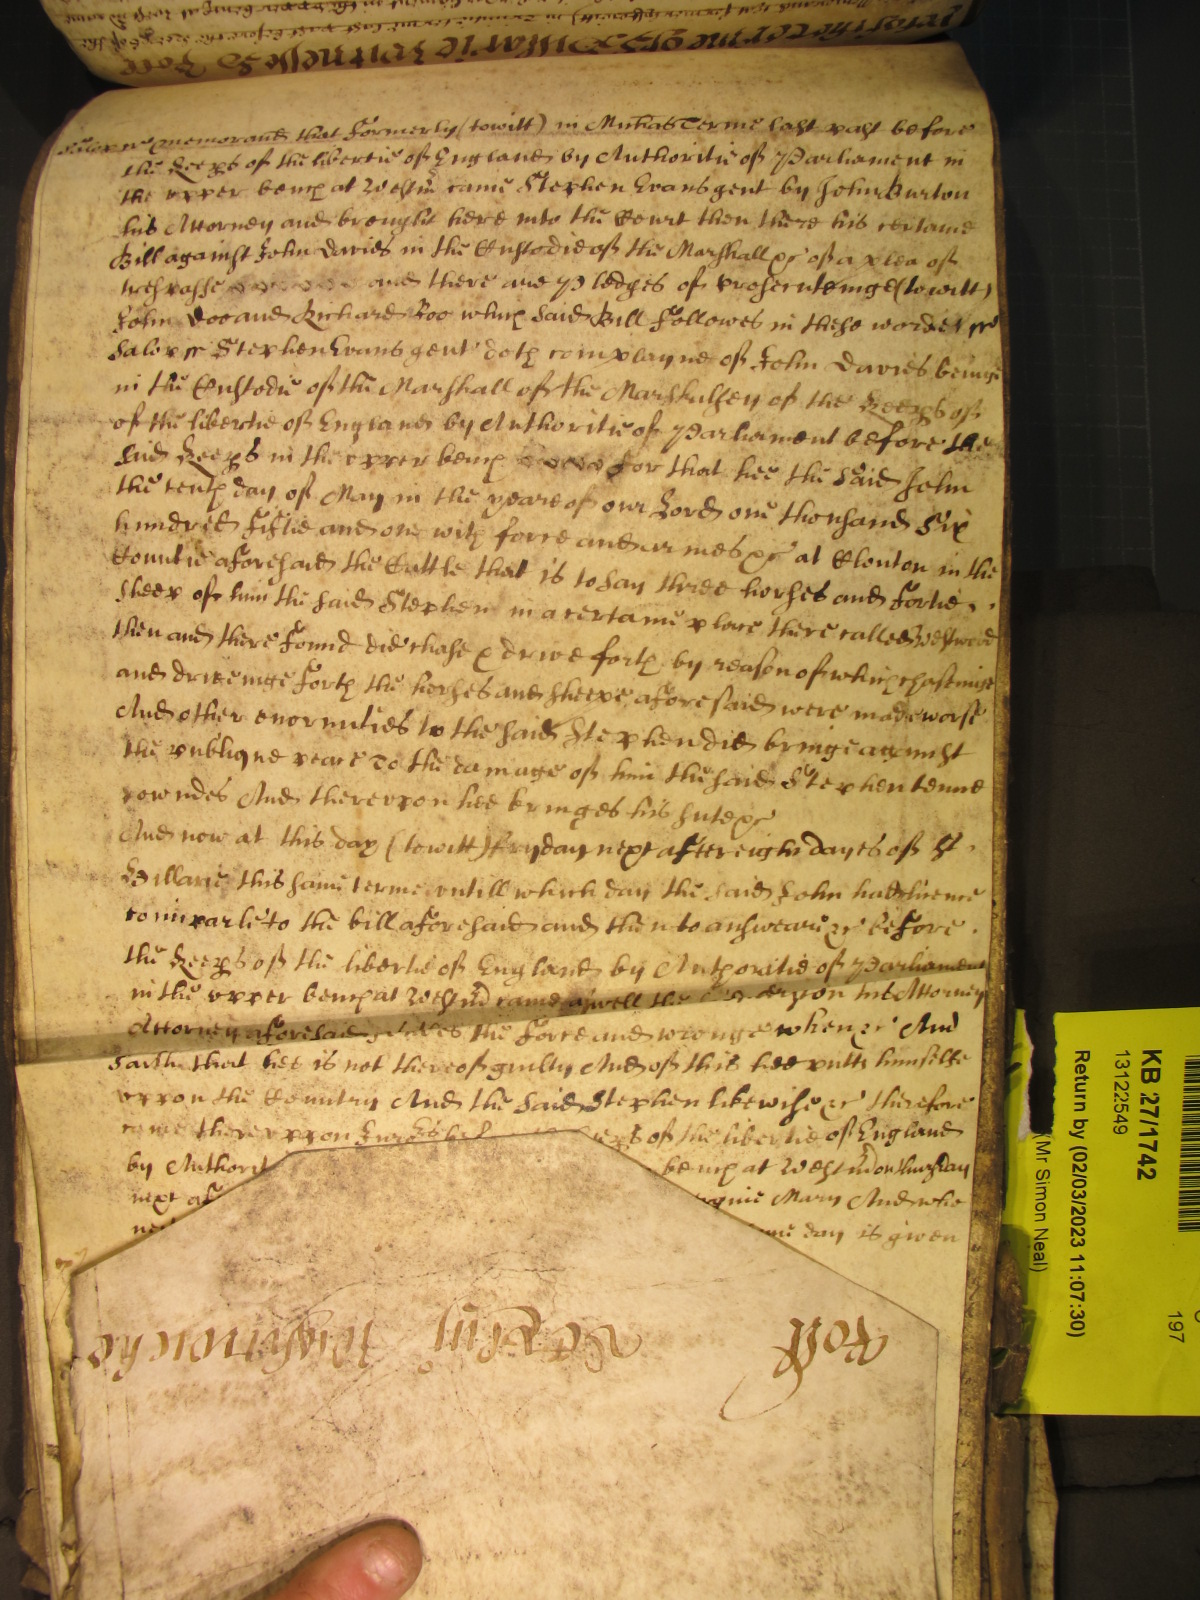 Salop ss Memorand that Formerly (towitt) in Michas Terme last past before
the Keeps of the libertie of England by Authoritie of Parliament in
the upper bench at Westm came Stephen Evans gent by John Burton
his Attorney and brought here into the Court then there his certaine
Bill against John Davies in the Custodie of the Marshall &c of a plea of
trespasse and there are Pledges of prosecuteinge (towitt)
John Doo and Richard Roo which said Bill Followes in these wordes ss
Salop ss Stephen Evans gent doth complayne of John Davies beinge
in the Custodie of the Marshall of the Marshalsey of the Keeps of
of the libertie of England by Authoritie of Parliament before the
said Keeps in the upper bench for that hee the said John
the tenth day of May in the yeare of our Lord one thousand Six
hundred Fiftie and one with force and armes &c at Clonton in the
Countie aforesaid the Cattle that is to say three horses and Fortie
sheep of him the said Stephen in a certaine place there called
then and there Found did chase & drive forth by reason of which chaseinge
and driveinge Forth the horses and sheepe aforesaid were made worse
And other enormities to the said Stephen did bringe against
the publique peace To the damage of him the said Stephen tenne
powndes And thereupon hee bringes his sute &c
And now at this day (towitt) fryday next after eight dayes of St
Hillarie this same terme untill which day the said John had licence
to imparle to the bill aforesaid and then to answeare &c before
the Keeps of the libertie of England by Authoritie of Parliament
in the upper bench at Westm came aswell the Attorney
Attorney aforesaid the Force and wronge when &c And
saith that hee is not thereof guilty And of this hee putts himselfe
uppon the Countrey And the said Stephen likewise &c therefore
came thereuppon of the libertie of England
by Authorit bench at Westm on thursday
next af Mary And who
day is given
Roll
KB 27/1742
13122549
Return by (02/03/2023 11:07:30)
(Mr Simon Neal)
197